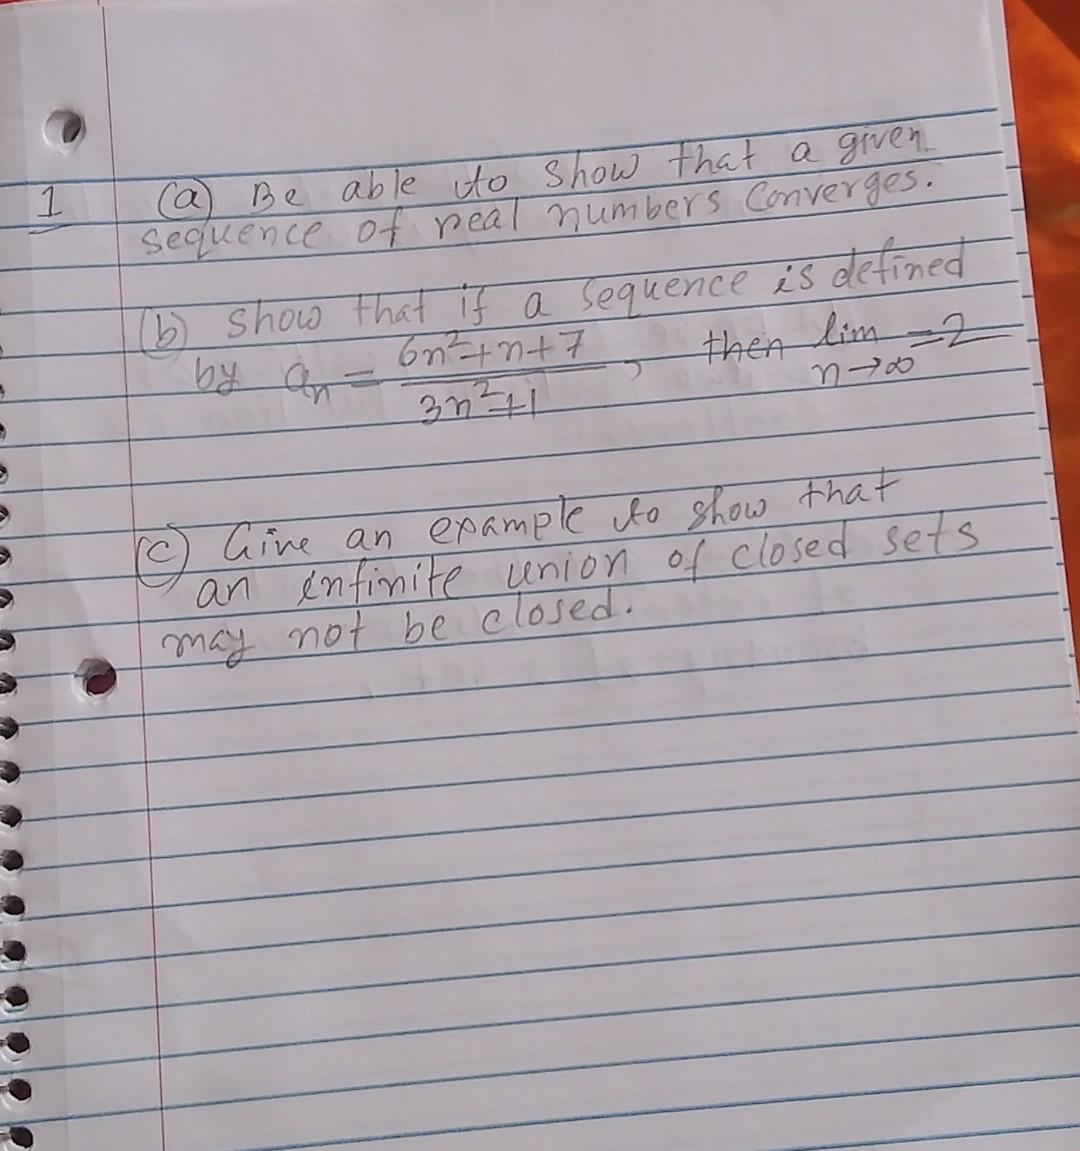 1 (a) Be able to show that a given
sequence of real numbers Converges.
(b) show that if a sequence is defined
by aₙ = (6n²+n+7)/(3n²+1), then lim n→∞ =2
(c) Give an example to show that
an infinite union of closed sets
may not be closed.